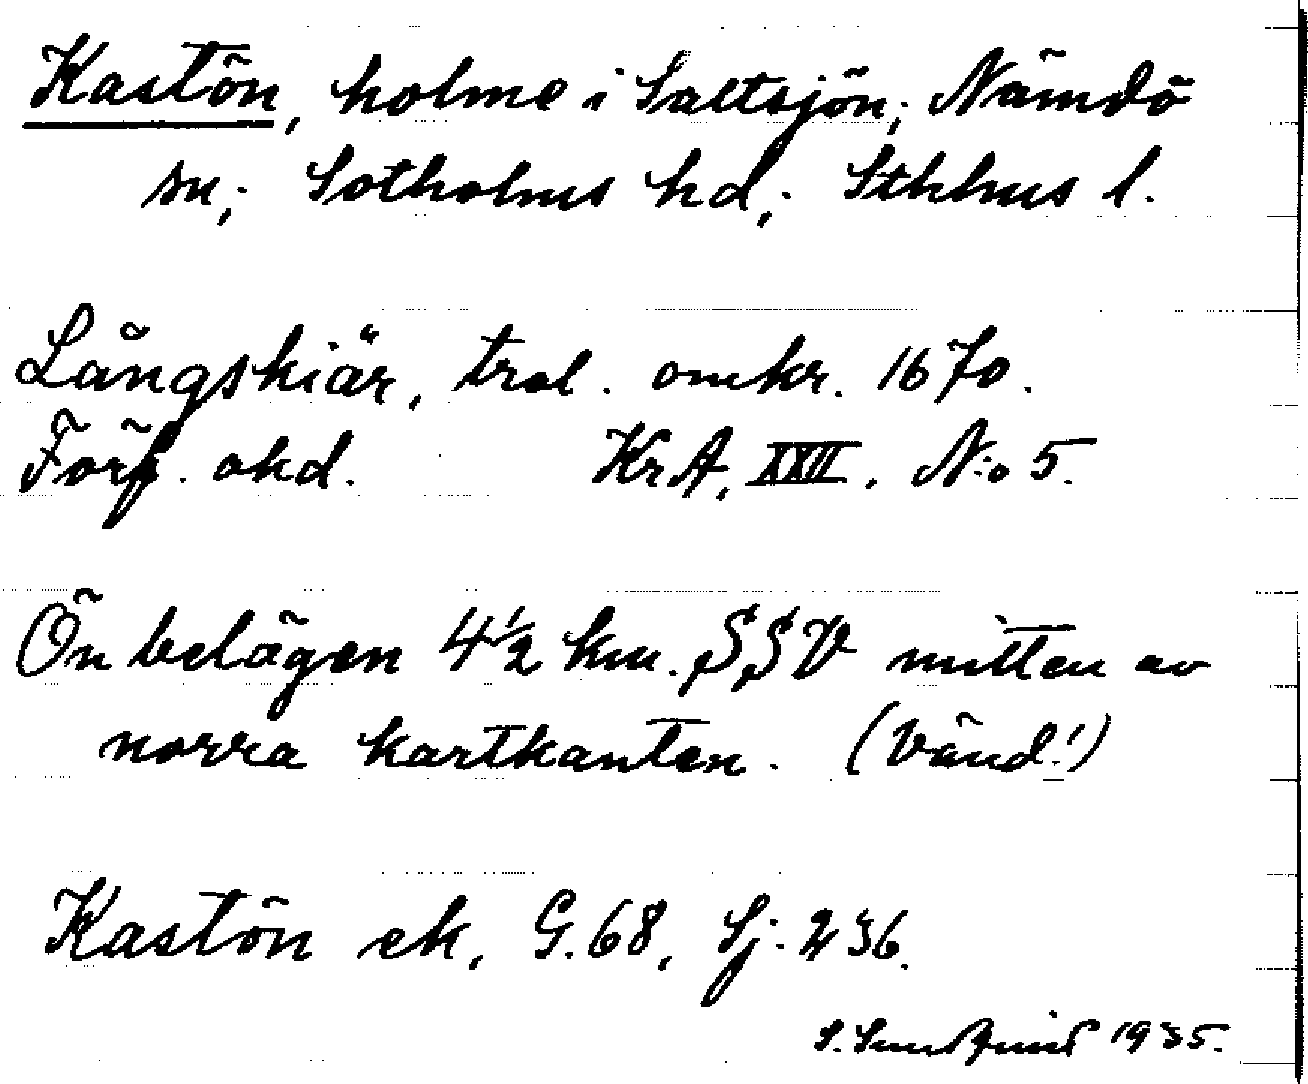 Kastön, holme i Saltsjön; Nämdö
sn; Sotholms hd; Sthlms l.
Långskiär, trol. omkr. 1670.
Förf. okd. KrA. XXII. N:o 5.
Ön belägen 4½ km. SSV mitten av
norra kartkanten. (Vänd!)
Kastön ek, G.68, Sj: 236.
S. 1935.